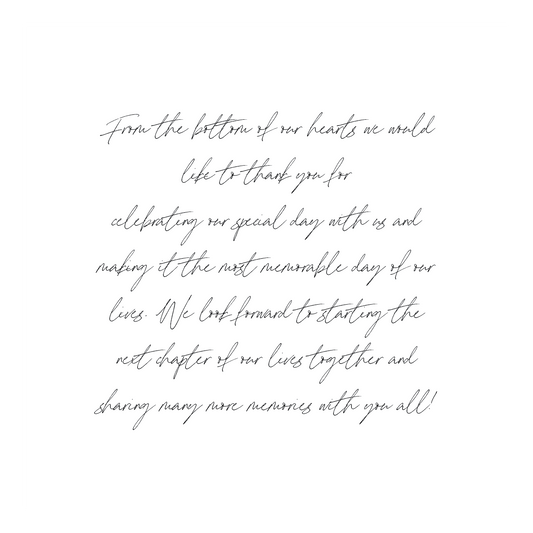 From the bottom of our hearts we would
like to thank you for
celebrating our special day with us and
making it the most memorable day of our
lives. We look forward to starting the
next chapter of our lives together and
sharing many more memories with you all!